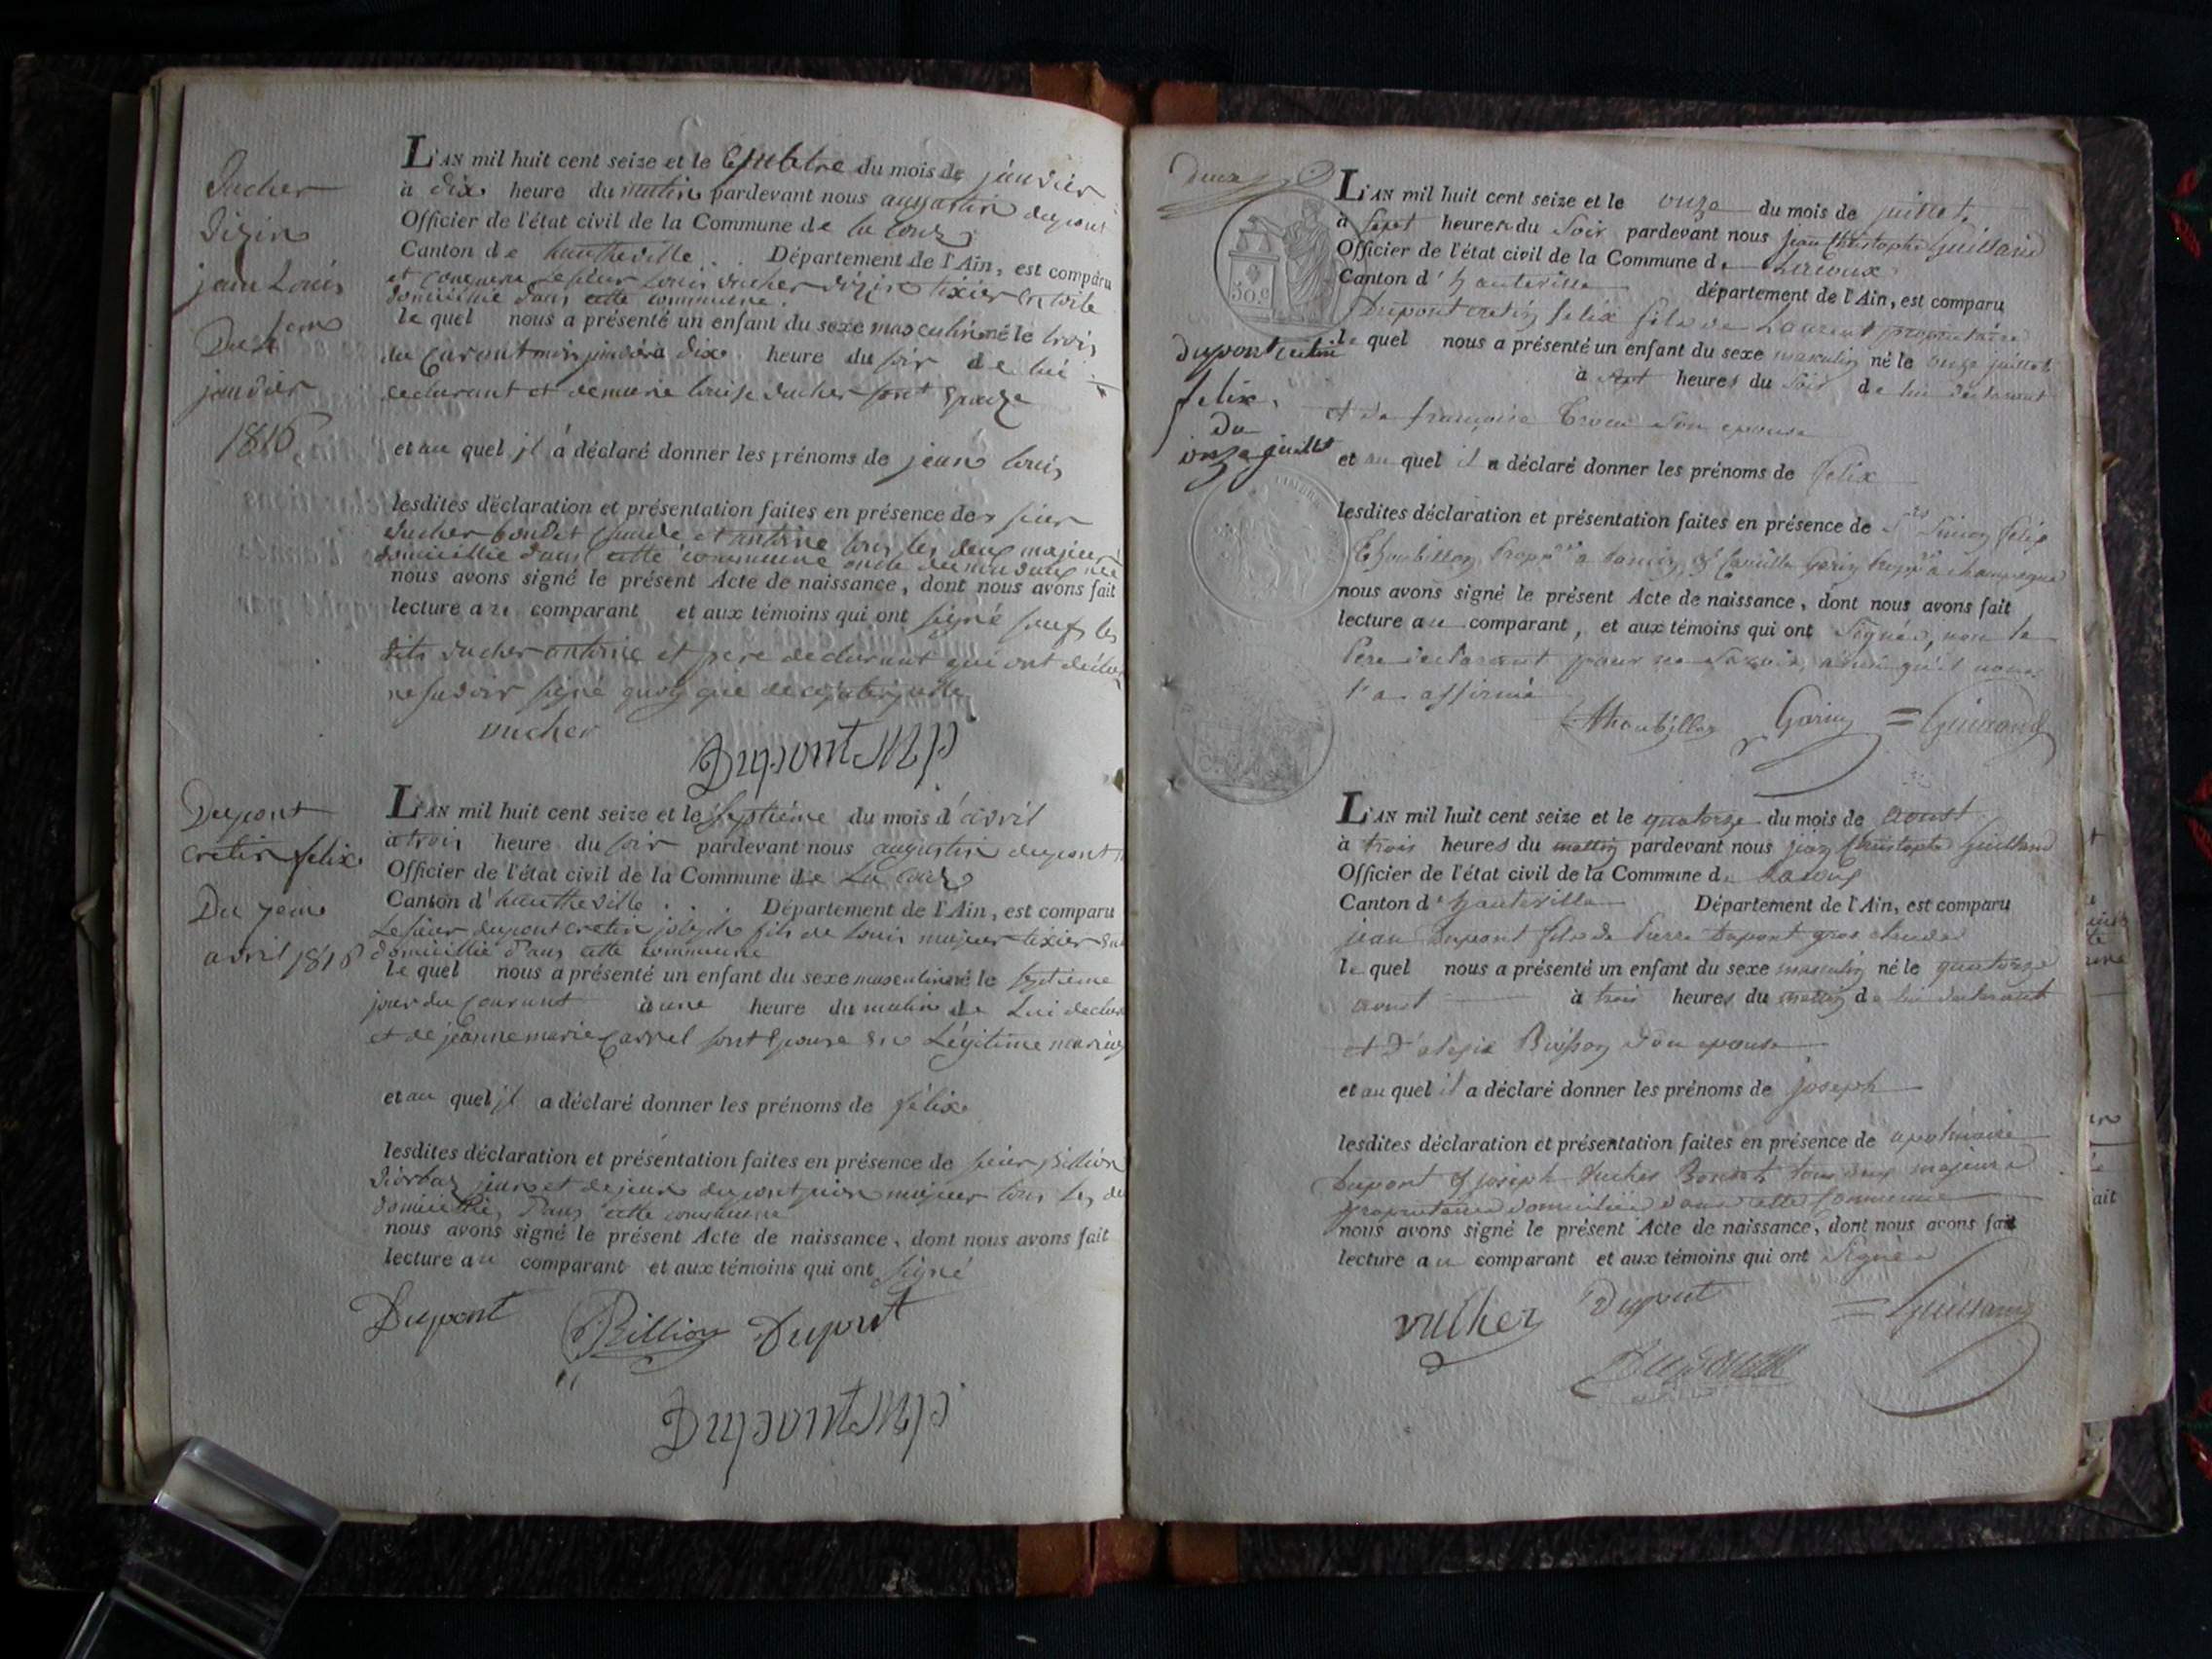 Ducher
Dizin
jean Louis
Du 4eme
janvier
1816
L'AN mil huit cent seize et le quatre du mois de janvier
à dix heure du matin pardevant nous augustin dupont
Officier de l'état civil de la Commune de la Coux
Canton de hautheville . . Département de l'Ain, est comparu
et le sieur Louis ducher dizin tixier en toile
domicillié dans cette commune.
le quel nous a présenté un enfant du sexe masculin né le trois
du Courant mois janvier à dix heure du soir de lui
declarant et de marie louise ducher sont Epouze
et au quel jl a déclaré donner les prénoms de jean louis
lesdites déclaration et présentation faites en présence de sieur
ducher bondet Claude et antoine tous les deux majeur
domicillié dans cette commune
nous avons signé le présent Acte de naissance, dont nous avons fait
lecture au comparant et aux témoins qui ont signé sauf les
dits ducher antoine et pere declarant qui ont déclaré
ne savoir signé quoy que de ce
Ducher
Dupont
Dupont
cretin felix
Du 7eme
avril 1816
L'AN mil huit cent seize et le septième du mois d'avril
à trois heure du soir pardevant nous augustin dupont
Officier de l'état civil de la Commune de La Coux
Canton d'hautheville . . . Département de l'Ain, est comparu
Le sieur dupont cretin joseph fils de louis majeur tixier
domicillié dans cette commune
le quel nous a présenté un enfant du sexe masculin né le septième
jour du Courant à une heure du matin de Lui declarant
et de jeanne marie Carrel sont Epouse en Légitime mariage
et au quel jl a déclaré donner les prénoms de félix
lesdites déclaration et présentation faites en présence de sieur billion
jean et de jean dupont majeur tous les
domicillié dans cette commune
nous avons signé le présent Acte de naissance, dont nous avons fait
lecture au comparant et aux témoins qui ont signé
Dupont Billion Dupont
Dupont
deux
30 c
dupont cretin
felix
du
onze juillet
L'AN mil huit cent seize et le onze du mois de juillet
à sept heures du soir pardevant nous jean Christophe Guilland
Officier de l'état civil de la Commune de
Canton d'hauteville département de l'Ain, est comparu
Dupont cretin felix fils de Laurent propriétaire
le quel nous a présenté un enfant du sexe masculin né le onze juillet
à sept heures du soir de lui déclarant
et de françoise son epouse
et au quel il a déclaré donner les prénoms de felix
lesdites déclaration et présentation faites en présence de Srs Simon felix
Camille Garin a champagne
nous avons signé le présent Acte de naissance, dont nous avons fait
lecture au comparant, et aux témoins qui ont Signés, non le
Pere déclarant pour ne Savoir, ainsi qu'il nous
l'a affirmé
Garin =Guilland
L'AN mil huit cent seize et le quatorze du mois de aoust
à trois heures du mattin pardevant nous jean Christophe Guilland
Officier de l'état civil de la Commune de Lacoux
Canton d'hauteville Département de l'Ain, est comparu
jean Dupont fils de Pierre Dupont gros
le quel nous a présenté un enfant du sexe masculin né le quatorze
aoust à trois heures du mattin de lui déclarant
et D' Buisson son epouse
et au quel il a déclaré donner les prénoms de joseph
lesdites déclaration et présentation faites en présence de
Dupont et joseph Ducher Bondet tous deux majeurs
propriétaires domiciliés dans cette Commune
nous avons signé le présent Acte de naissance, dont nous avons fait
lecture au comparant et aux témoins qui ont Signés
Ducher Dupont =Guilland
Dupont